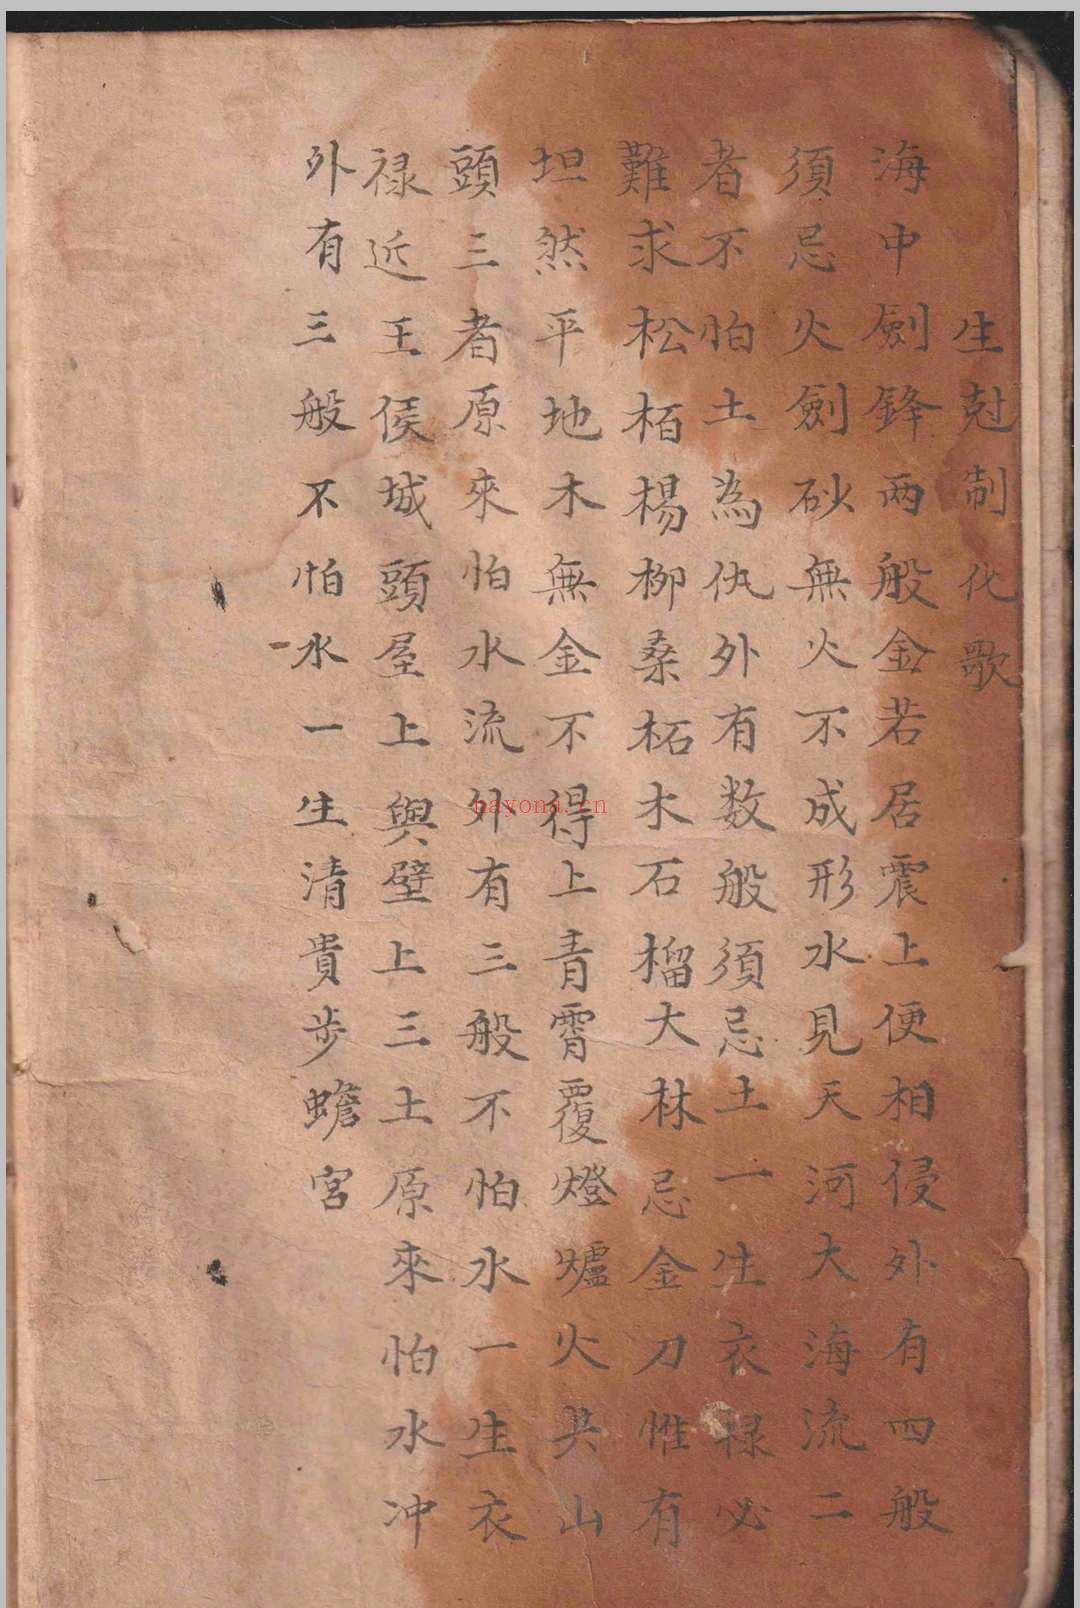 生尅制化歌
海中劍鋒两般金若居震上便相侵外有四般
須忌火劍砂無火不成形水見天河大海流二
者不怕土為仇外有数般須忌土一生衣禄必
難求松栢楊柳桑柘木石榴大林忌金刀惟有
坦然平地木無金不得上青霄覆燈爐火共山
頭三者原來怕水流外有三般不怕水一生衣
禄近王侯城頭屋上與壁上三土原來怕水冲
外有三般不怕水一生清貴步蟾宮
bayona.cn